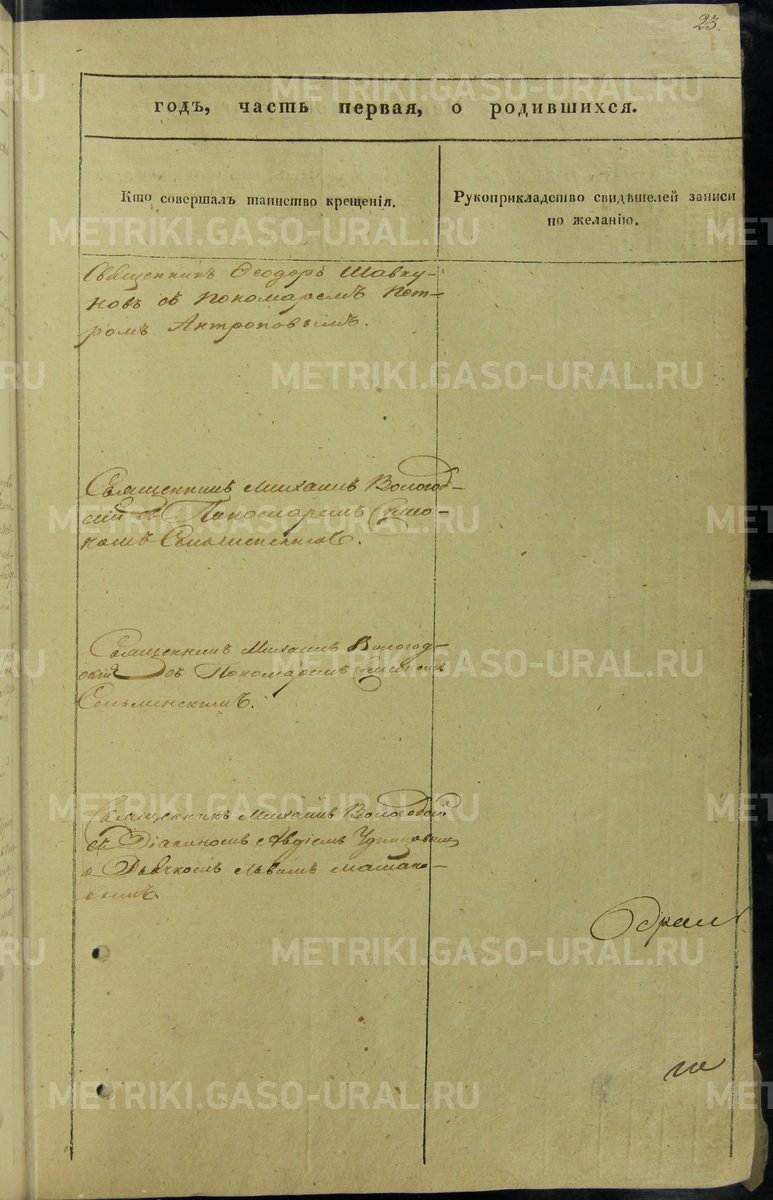 23.
годъ, часть первая, о родившихся.
Кто совершалъ таинство крещенія.
Рукоприкладство свидѣтелей записи
по желанію.
Священникъ Ѳеодоръ Шавку-
новъ съ пономаремъ Пет-
ромъ Антроповымъ.
Священникъ Михаилъ Вологод-
скій съ Пономаремъ
Священникъ Михаилъ Вологод-
скій съ Пономаремъ
Сельменскимъ.
Священникъ Михаилъ Вологодскій
съ Діакономъ Авдіемъ Удинцовымъ
и Дьячкомъ Львомъ Машано-
вымъ
METRIKI.GASO-URAL.RU